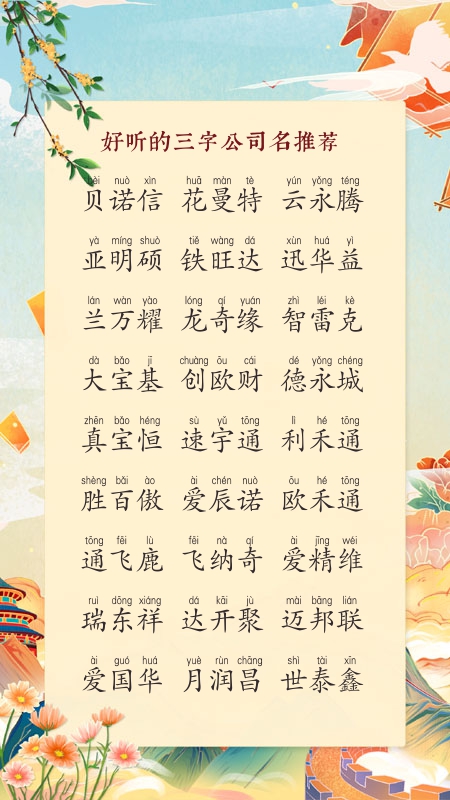 好听的三字公司名推荐
bèi nuò xìn huā màn tè yún yǒng téng
贝诺信 花曼特 云永腾
yà míng shuò tiě wàng dá xùn huá yì
亚明硕 铁旺达 迅华益
lán wàn yào lóng qí yuán zhì léi kè
兰万耀 龙奇缘 智雷克
dà bǎo jī chuàng ōu cái dé yǒng chéng
大宝基 创欧财 德永城
zhēn bǎo héng sù yǔ tōng lì hé tōng
真宝恒 速宇通 利禾通
shèng bǎi ào ài chén nuò ōu hé tōng
胜百傲 爱辰诺 欧禾通
tōng fēi lù fēi nà qí ài jīng wéi
通飞鹿 飞纳奇 爱精维
ruì dōng xiáng dá kāi jù mài bāng lián
瑞东祥 达开聚 迈邦联
ài guó huá yuè rùn chāng shì tài xīn
爱国华 月润昌 世泰鑫